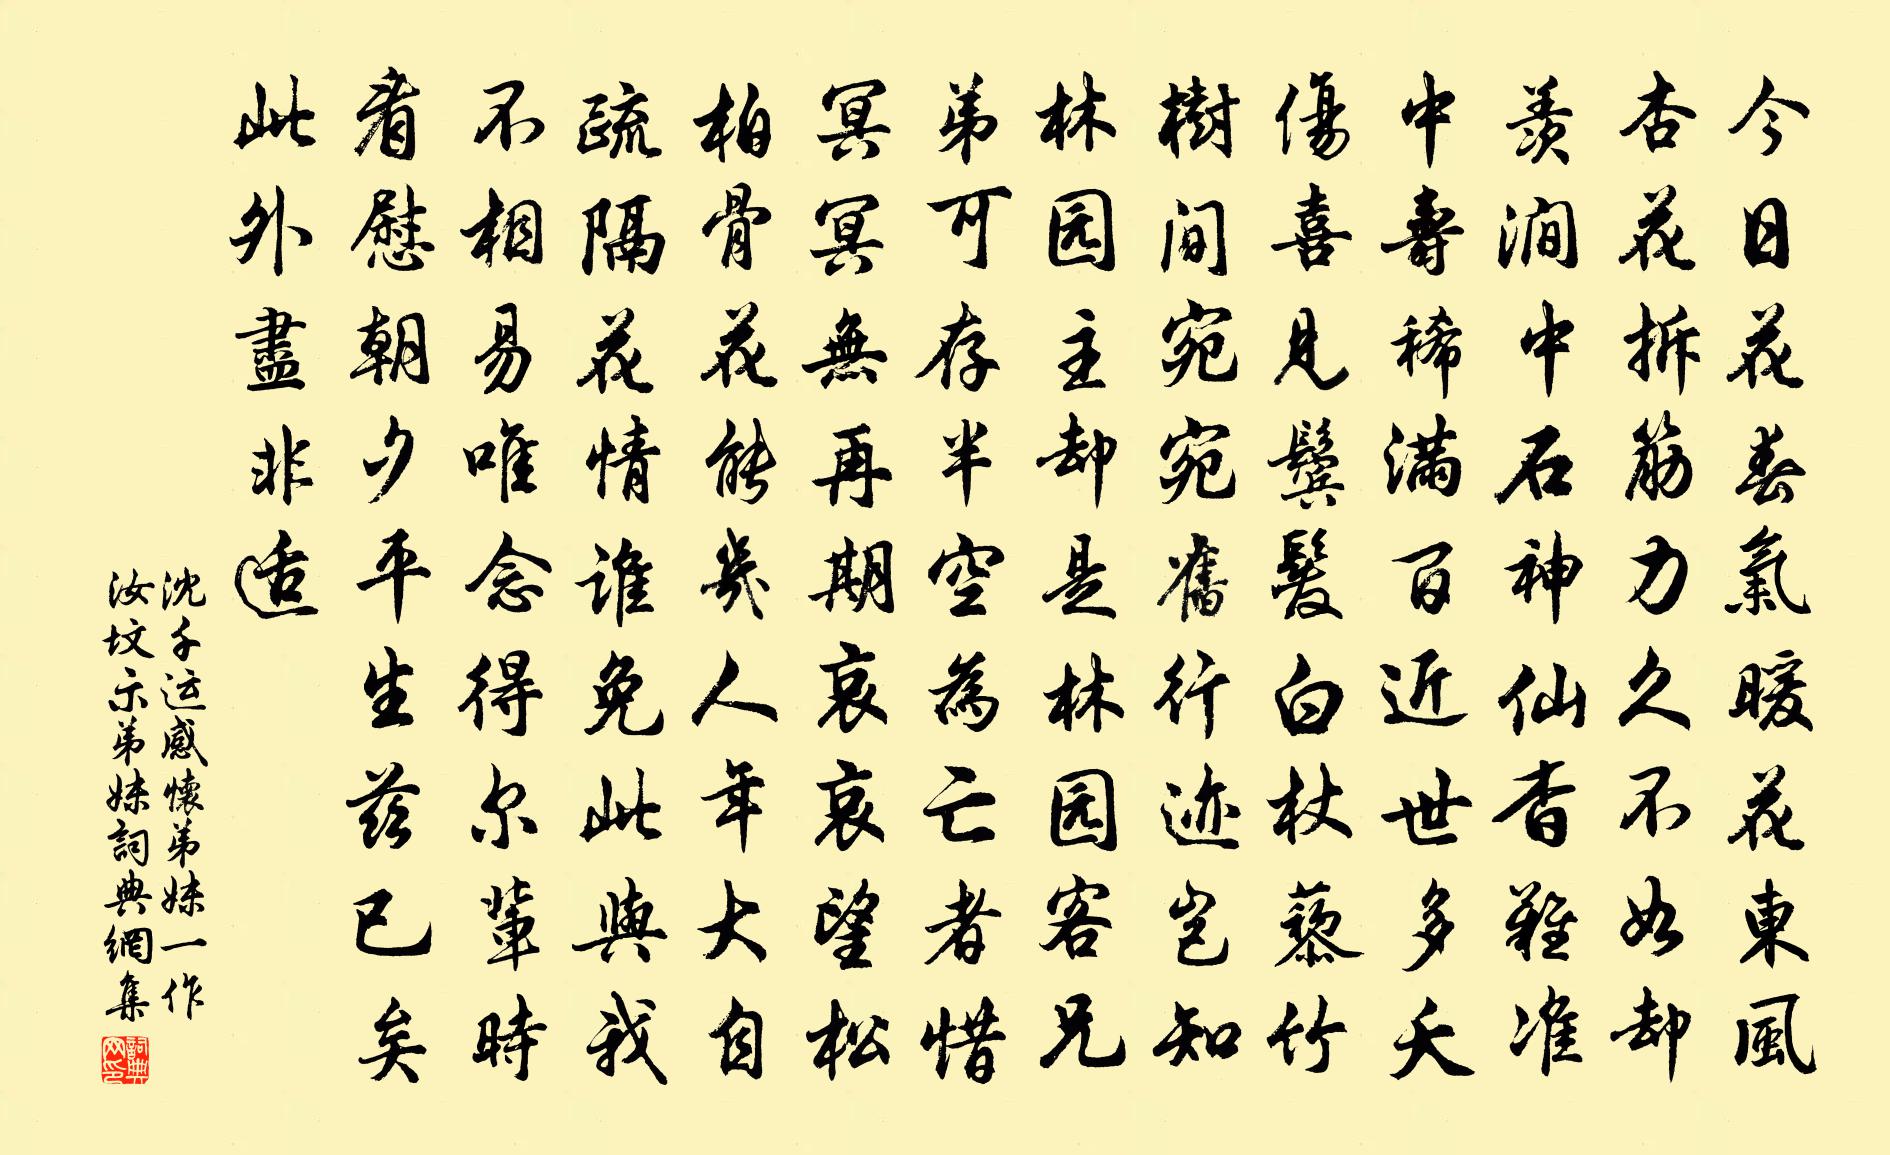 今日花春氣暖花東風
杏花拆筋力久不如却
羨澗中石神仙杳難准
中壽稀滿百近世多夭
傷喜見鬢髮白杖藜竹
樹间宛宛舊行迹豈知
林园主却是林园客兄
弟可存半空為亡者惜
冥冥無再期哀哀望松
柏骨花能幾人年大自
疏隔花情誰免此與我
不相易唯念得尔輩時
看慰朝夕平生茲已矣
此外盡非适
沈千运感懷弟妹一作
汝坟示弟妹詞典網集
詞典网印